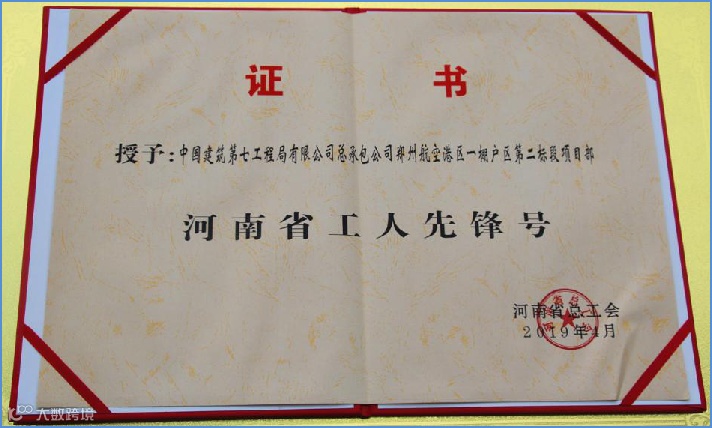 证书
授予：中国建筑第七工程局有限公司总承包公司郑州航空港区一棚户区第二标段项目部
河南省工人先锋号
河南省总工会
2019年4月
大数跨境